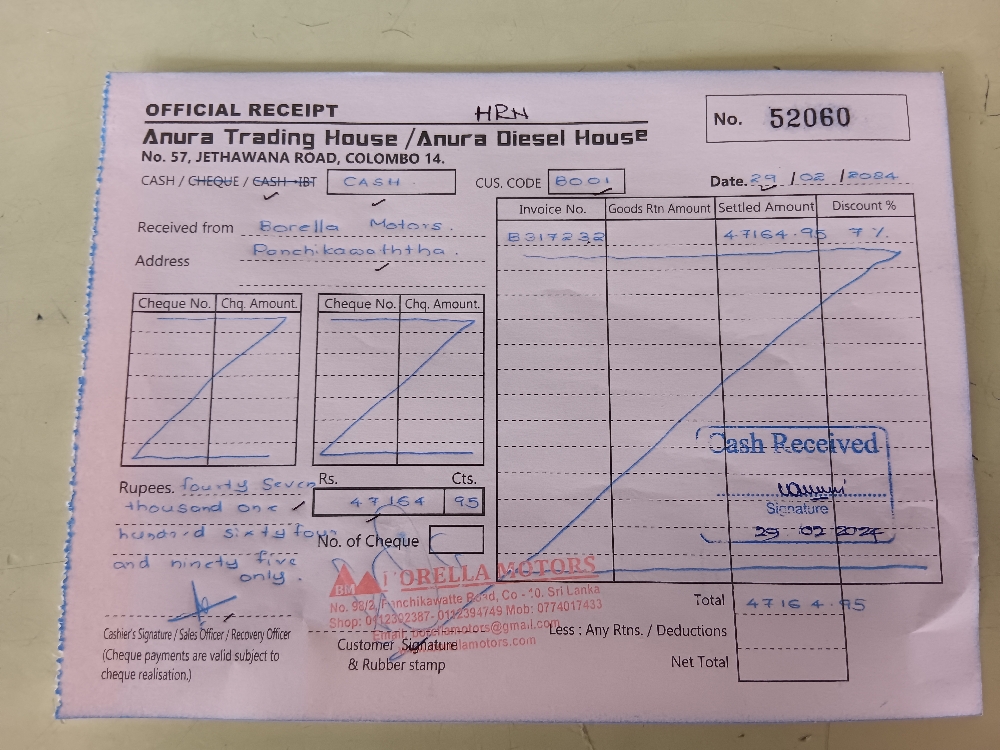 OFFICIAL RECEIPT HRN
No. 52060
Anura Trading House / Anura Diesel House
No. 57, JETHAWANA ROAD, COLOMBO 14.
CASH / CHEQUE / CASH - IBT CASH CUS. CODE B001 Date. 29 / 02 / 2024
Received from Borella Motors.
Address Panchikawaththa.
Invoice No. Goods Rtn Amount Settled Amount Discount %
B317232 47164.95 7%
Cheque No. Chq. Amount. Cheque No. Chq. Amount.
Cash Received
Signature
29 02 2024
Rs. Cts.
47164 95
Rupees. fourty Seven
thousand one
hundred sixty four
and ninety five
only.
No. of Cheque
BM BORELLA MOTORS
No. 98/2, Panchikawatte Road, Co - 10. Sri Lanka
Shop: 0112302387- 0112394749 Mob: 0774017433
Email: @gmail.com
Total 47164.95
Less : Any Rtns. / Deductions
Net Total
Cashier's Signature / Sales Officer / Recovery Officer
(Cheque payments are valid subject to
cheque realisation.)
Customer Signature
& Rubber stamp